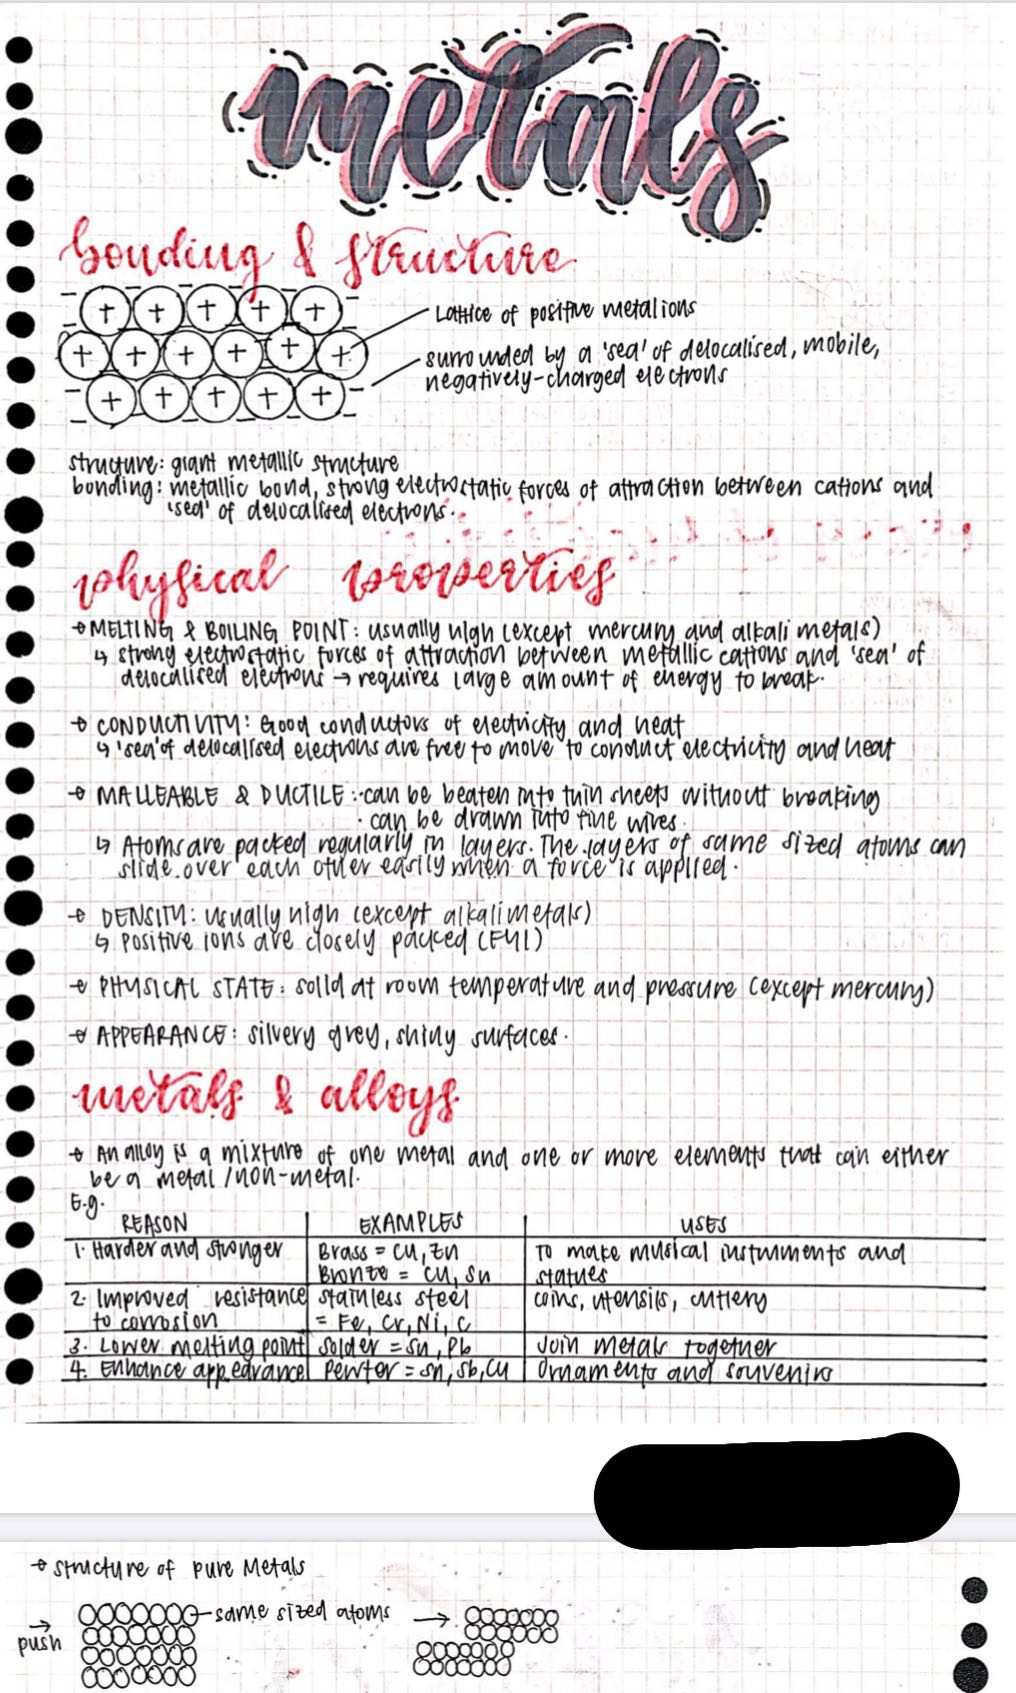 metals
bonding & structure
+ + + + +
Lattice of positive metal ions
+ + + + + +
surrounded by a 'sea' of delocalised, mobile,
negatively-charged electrons
+ + + + +
structure: giant metallic structure
bonding: metallic bond, strong electrostatic forces of attraction between cations and
'sea' of delocalised electrons.
physical properties
→ MELTING & BOILING POINT: usually high (except mercury and alkali metals)
↳ strong electrostatic forces of attraction between metallic cations and 'sea' of
delocalised electrons → requires large amount of energy to break.
→ CONDUCTIVITY: Good conductors of electricity and heat
↳ 'sea' of delocalised electrons are free to move to conduct electricity and heat
→ MALLEABLE & DUCTILE: · can be beaten into thin sheets without breaking
· can be drawn into fine wires.
↳ Atoms are packed regularly in layers. The layers of same sized atoms can
slide over each other easily when a force is applied.
→ DENSITY: usually high (except alkali metals)
↳ positive ions are closely packed (FYI)
→ PHYSICAL STATE: solid at room temperature and pressure (except mercury)
→ APPEARANCE: silvery grey, shiny surfaces.
metals & alloys
→ An alloy is a mixture of one metal and one or more elements that can either
be a metal/non-metal.
E.g.
REASON EXAMPLES USES
1. Harder and stronger Brass = Cu, Zn To make musical instruments and
Bronze = Cu, Sn statues
2. Improved resistance stainless steel coins, utensils, cutlery
to corrosion = Fe, Cr, Ni, C
3. Lower melting point Solder = Sn, Pb Join metals together
4. Enhance appearance Pewter = Sn, Sb, Cu Ornaments and souvenirs
→ structure of pure Metals
→ same sized atoms →
push